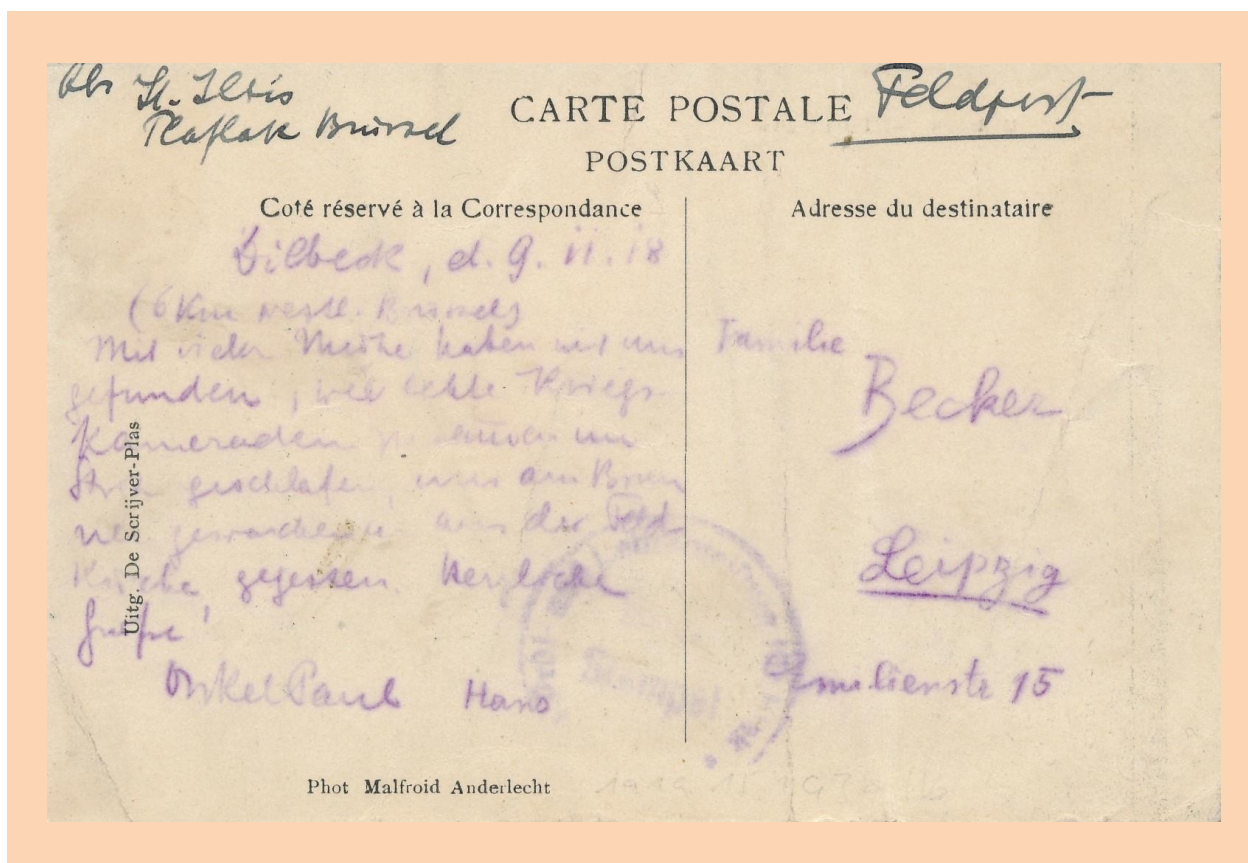 Abs
Brüssel
Feldpost
CARTE POSTALE
POSTKAART
Coté réservé à la Correspondance
Adresse du destinataire
Dilbeck, d. 9. 11. 18
(6 Km westl. Brüssel)
Mit vieler Mühe haben wir uns
gefunden, wie echte Kriegs-
Kameraden zusammen im
Stroh geschlafen, uns am Brun
nen gewaschen u. aus der Feld
Küche gegessen. Herzliche
Grüße!
Onkel Paul Hans
Familie
Becker
Leipzig
Emilienstr 15
Uitg. De Scrijver-Plas
Phot Malfroid Anderlecht